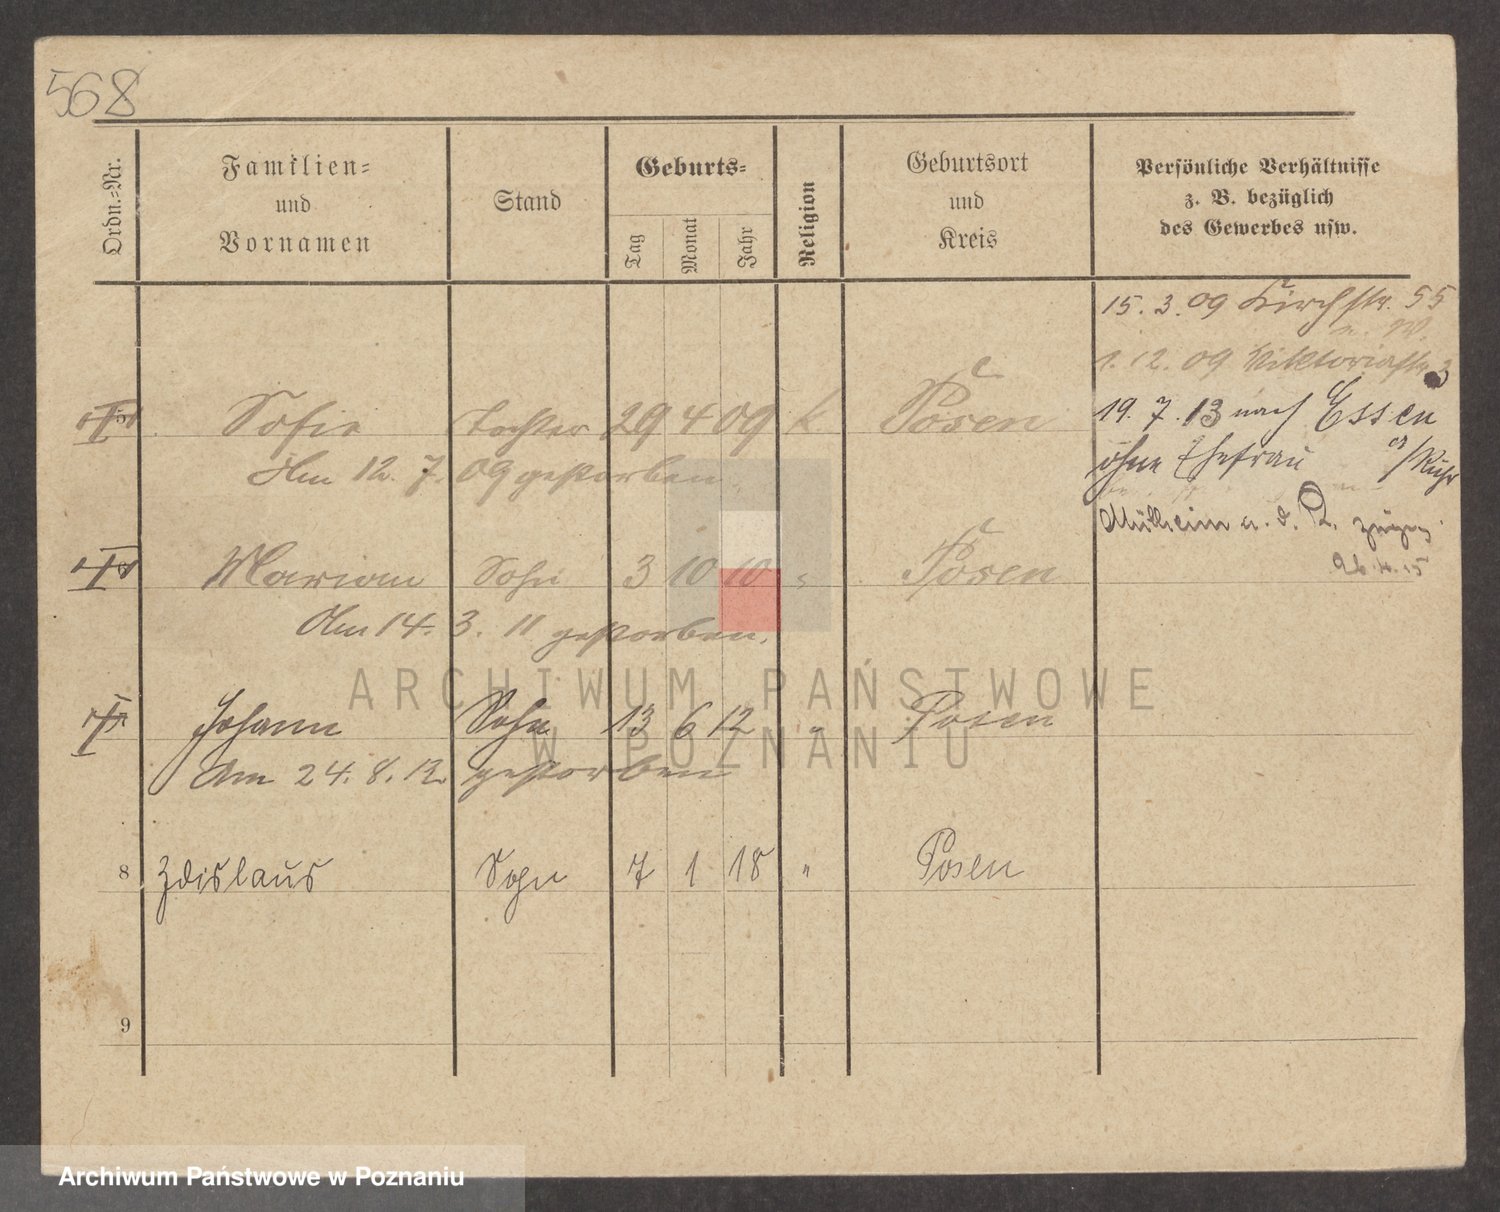 568
Ordn.-Nr.
Familien-
und
Vornamen
Stand
Geburts-
Tag
Monat
Jahr
Religion
Geburtsort
und
Kreis
Persönliche Verhältnisse
z. B. bezüglich
des Gewerbes usw.
15. 3. 09 Kirchstr. 55
1. 12. 09 Viktoriastr. 3
Sofie Tochter 29 4 09 k Posen
19. 7. 13 nach Essen
Am 12. 7. 09 gestorben
ohne Ehefrau a/Ruhr
Mülheim a. d. R.
Marian Sohn 3 10 10 " Posen
Am 14. 3. 11 gestorben.
Johann Sohn 13 6 12 " Posen
Am 24. 8. 12 gestorben
8 Zdislaus Sohn 7 1 18 " Posen
9
ARCHIWUM PAŃSTWOWE
W POZNANIU
Archiwum Państwowe w Poznaniu